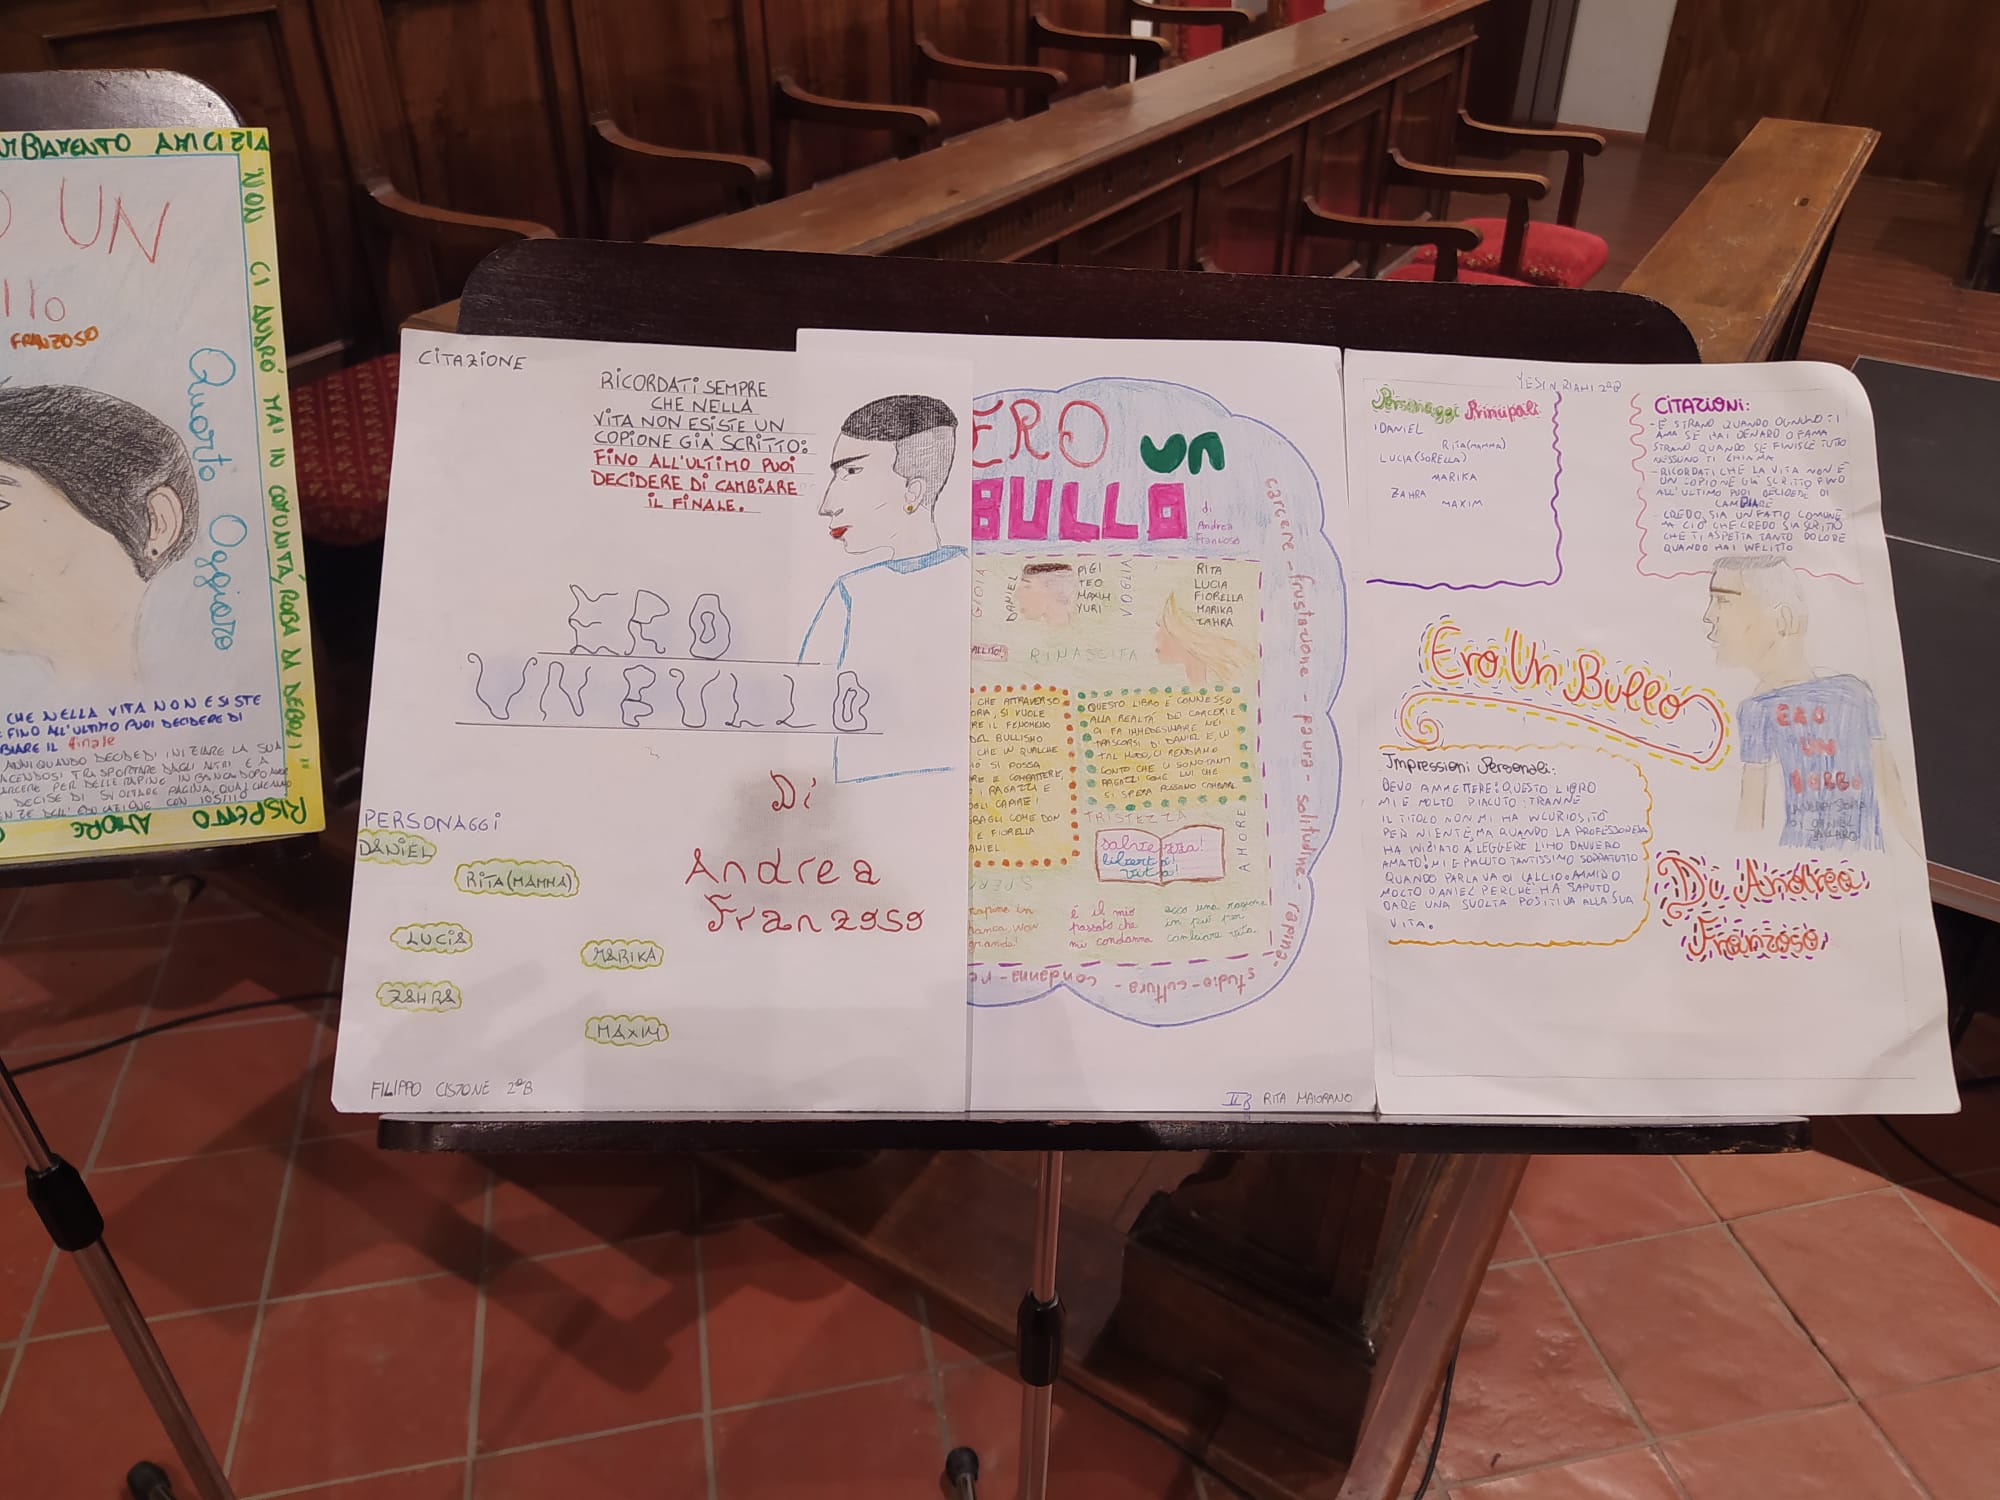 AMICIZIA
NON CI ANDRÒ MAI IN COMUNITÀ, ROBA DA DEBOLI"
UN
FRANZOSO
Quarto Oggiaro
CHE NELLA VITA NON ESISTE
FINO ALL'ULTIMO PUOI DECIDERE DI
IL finale
RISPETTO AMORE
CITAZIONE
RICORDATI SEMPRE
CHE NELLA
VITA NON ESISTE UN
COPIONE GIÀ SCRITTO:
FINO ALL'ULTIMO PUOI
DECIDERE DI CAMBIARE
IL FINALE.
ERO
UN BULLO
Di
Andrea
Franzoso
PERSONAGGI
DANIEL
RITA (MAMMA)
LUCIA
MARIKA
ZAHRA
MAXIM
FILIPPO CISZONE 2ªB
ERO un
BULLO
di
Andrea
carcere - frustazione - paura - solitudine - rapina -
GIOIA
DANIEL
PIGI
TEO
MAXIM
YURI
VOGLIA
RITA
LUCIA
FIORELLA
MARIKA
ZAHRA
RINASCITA
CHE ATTRAVERSO
SI VUOLE
IL FENOMENO
DEL BULLISMO
CHE IN QUALCHE
SI POSSA
E COMBATTERE,
I RAGAZZI E
CAPIRE!
COME DON
E FIORELLA
QUESTO LIBRO È CONNESSO
ALLA REALTÀ DEI CARCERI E
CI FA IMMEDESIMARE NEI
TRASCORSI DI DANIEL E, IN
TAL MODO, CI RENDIAMO
CONTO CHE CI SONO TANTI
RAGAZZI COME LUI CHE
SI SPERA POSSANO CAMBIARE.
TRISTEZZA
AMORE
salvezza!
libertà!
vita!
è il mio
passato che
mi condanna
ecco una ragione
in più per
cambiare vita.
studio - cultura - condanna -
II B RITA MAIORANO
YESIN RIAHI 2ªB
Personaggi Principali
DANIEL
RITA (MAMMA)
LUCIA (SORELLA)
MARIKA
ZAHRA
MAXIM
CITAZIONI:
- È STRANO QUANDO OGNUNO TI
AMA SE HAI DENARO O FAMA
STRANO QUANDO SE FINISCE TUTTO
NESSUNO TI CHIAMA
- RICORDATI CHE LA VITA NON È
UN COPIONE GIÀ SCRITTO FINO
ALL'ULTIMO PUOI DECIDERE DI
CAMBIARE
CREDO SIA UN FATTO COMUNE
MA CIÒ CHE CREDO SIA SCRITTO
CHE TI ASPETTA TANTO DOLORE
QUANDO HAI
Ero Un Bullo
ERO
UN
Impressioni Personali:
DEVO AMMETTERE: QUESTO LIBRO
MI È MOLTO PIACIUTO; TRANNE
IL TITOLO NON MI HA INCURIOSITO
PER NIENTE, MA QUANDO LA PROFESSORESSA
HA INIZIATO A LEGGERE L'HO DAVVERO
AMATO! MI È PIACIUTO TANTISSIMO SOPRATUTTO
QUANDO PARLAVA DI CALCIO. AMMIRO
MOLTO DANIEL PERCHÈ HA SAPUTO
DARE UNA SVOLTA POSITIVA ALLA SUA
VITA.
Di Andrea
Franzoso